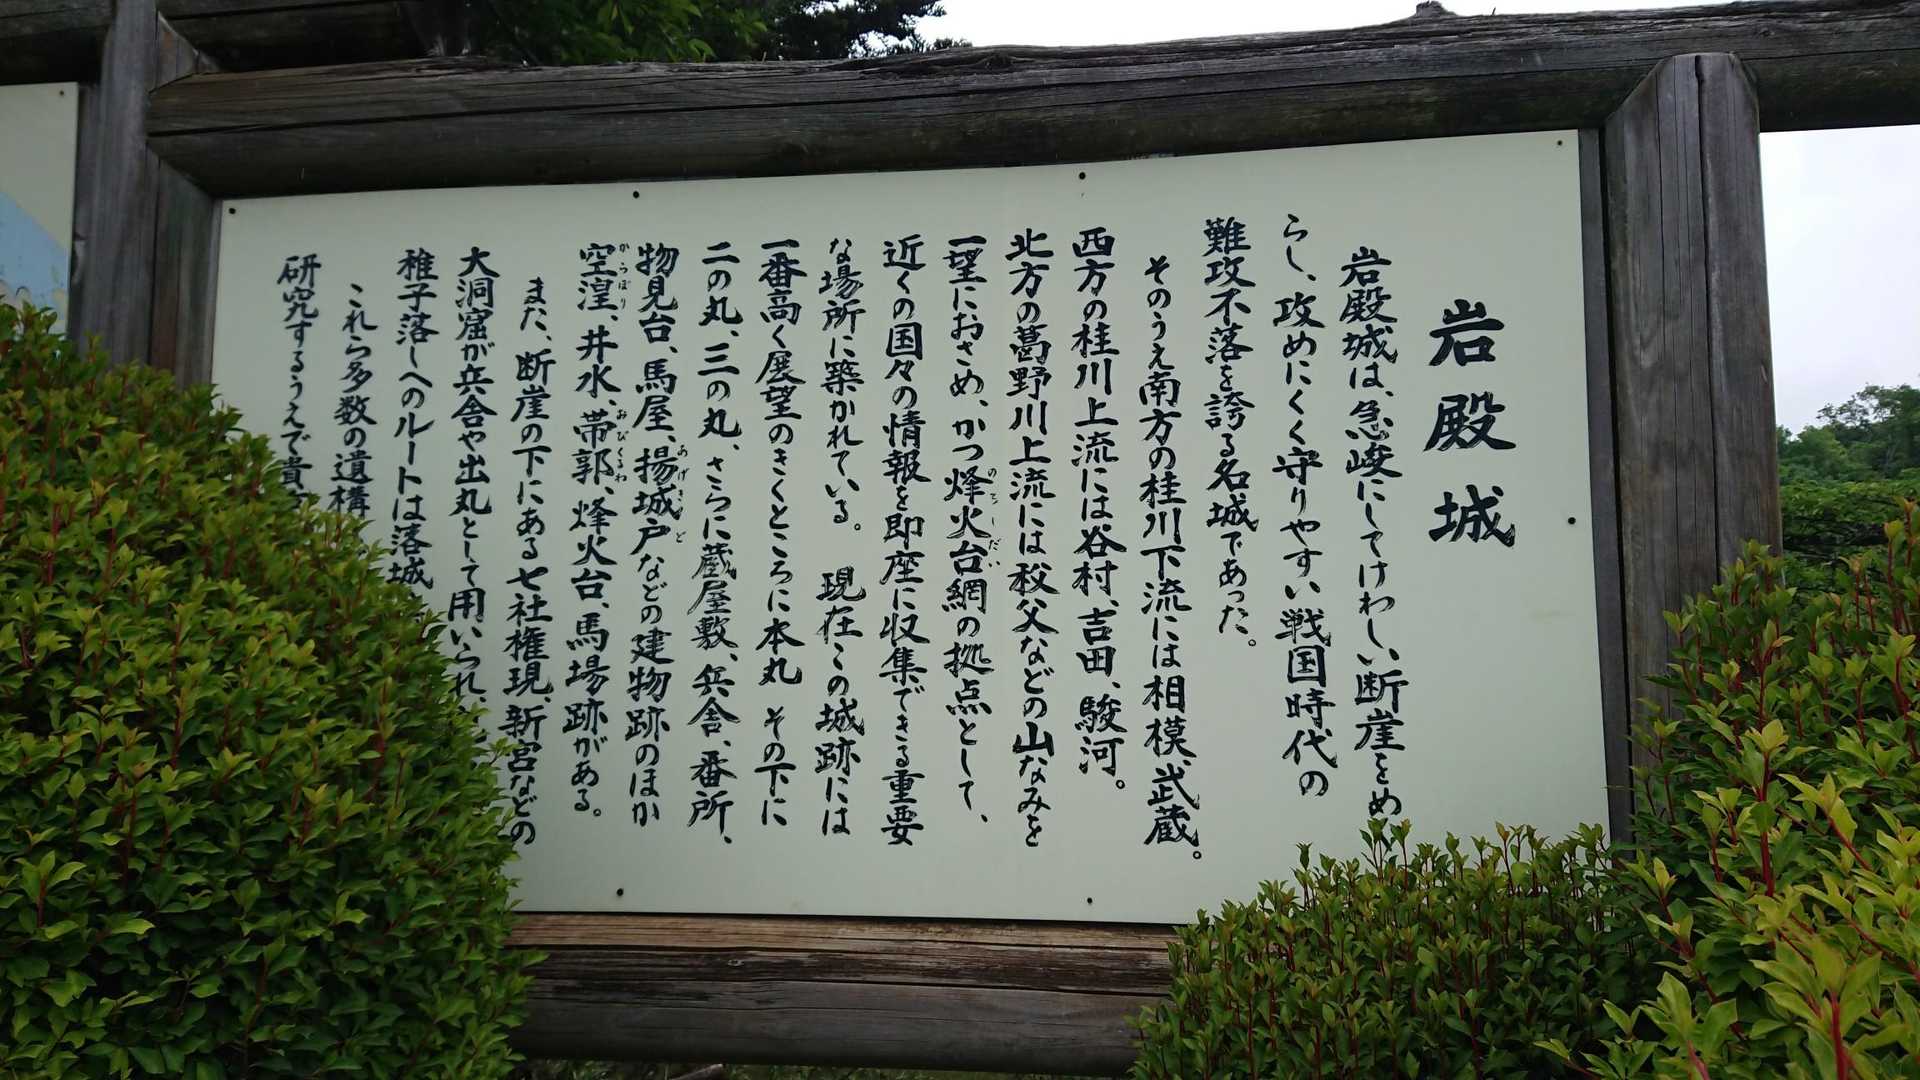 岩殿城
岩殿城は、急峻にしてけわしい断崖をめ
らし、攻めにくく守りやすい戦国時代の
難攻不落を誇る名城であった。
そのうえ南方の桂川下流には相模、武蔵。
西方の桂川上流には谷村、吉田、駿河。
北方の葛野川上流には秩父などの山なみを
一望におさめ、かつ烽火台網の拠点として、
近くの国々の情報を即座に収集できる重要
な場所に築かれている。 現在この城跡には
一番高く展望のきくところに本丸 その下に
二の丸、三の丸、さらに蔵屋敷、兵舎、番所、
物見台、馬屋、揚城戸などの建物跡のほか
空湟、井水、帯郭、烽火台、馬場跡がある。
また、断崖の下にある七社権現、新宮などの
大洞窟が兵舎や出丸として用いられ、
稚子落しへのルートは落城
これら多数の遺構
研究するうえで貴